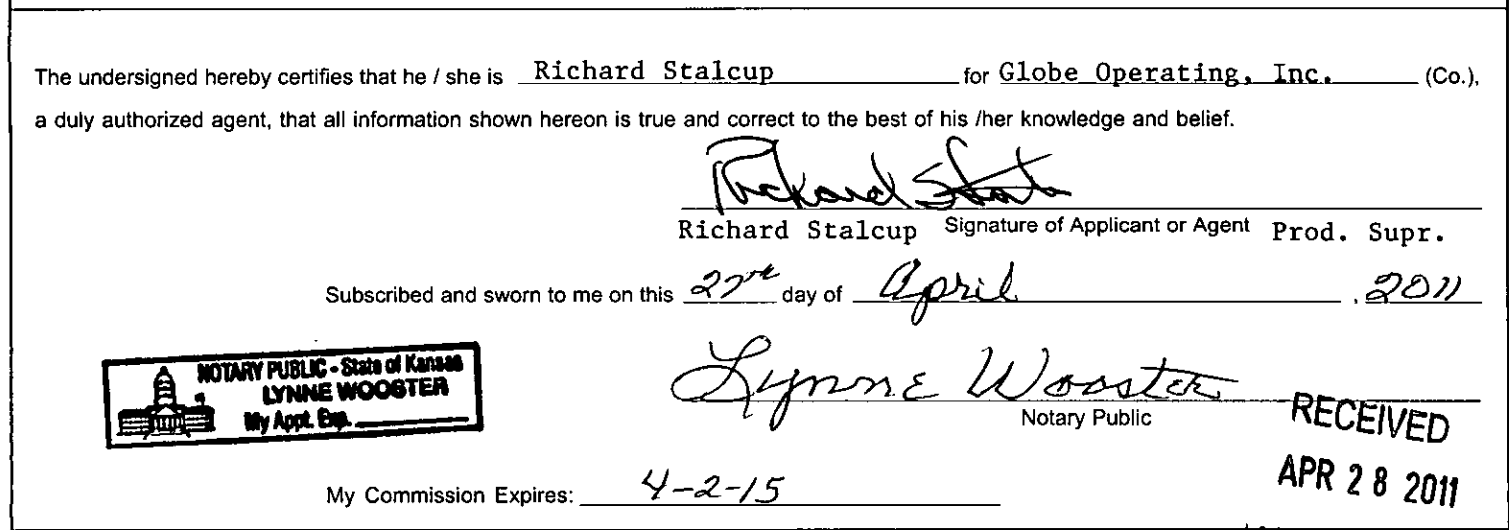 The undersigned hereby certifies that he / she is Richard Stalcup for Globe Operating, Inc. (Co.),
a duly authorized agent, that all information shown hereon is true and correct to the best of his /her knowledge and belief.
Richard Stalcup
Richard Stalcup Signature of Applicant or Agent Prod. Supr.
Subscribed and sworn to me on this 27th day of April , 2011
NOTARY PUBLIC - State of Kansas
LYNNE WOOSTER
My Appt. Exp.
Lynne Wooster
Notary Public
RECEIVED
APR 28 2011
My Commission Expires: 4-2-15